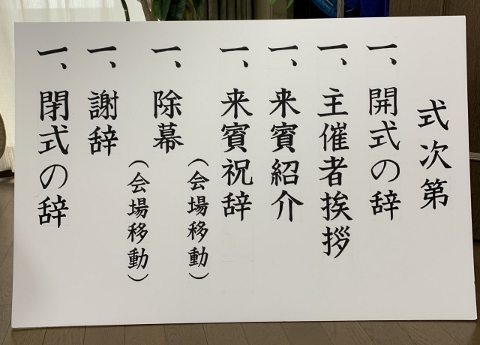 式次第
一、開式の辞
一、主催者挨拶
一、来賓紹介
一、来賓祝辞
（会場移動）
一、除幕
（会場移動）
一、謝辞
一、閉式の辞